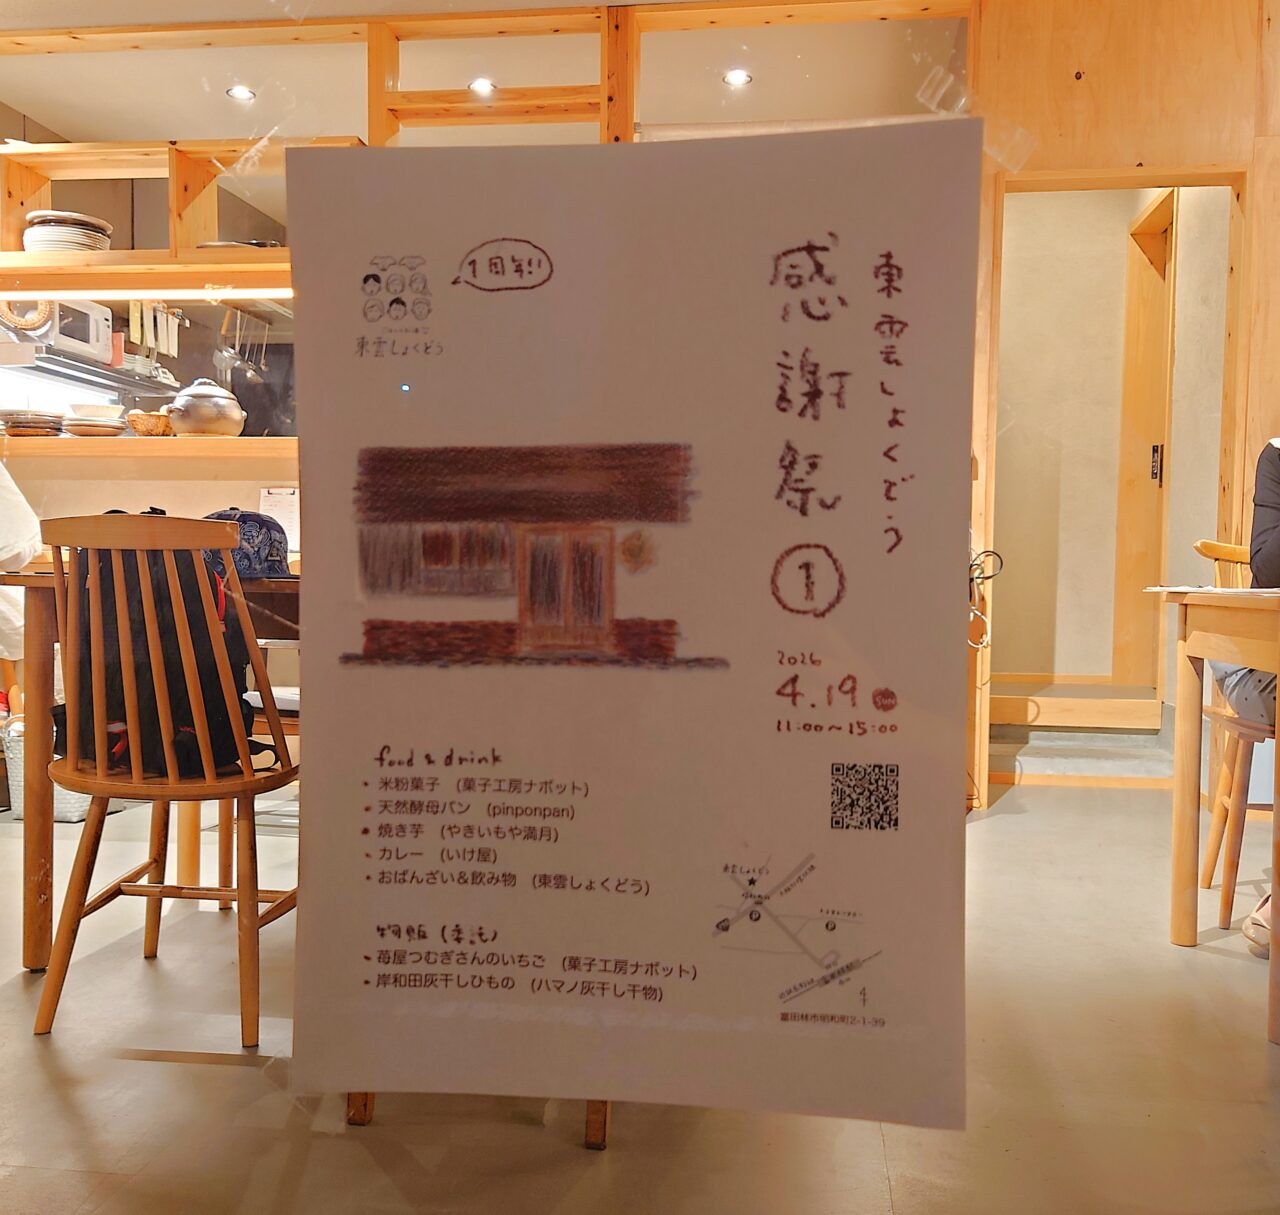 東雲しょくどう
感謝祭①
1周年!!
東雲しょくどう
2026
4.19 sun
11:00~15:00
food & drink
・米粉菓子 (菓子工房ナポット)
・天然酵母パン (pinponpan)
・焼き芋 (やきいもや満月)
・カレー (いけ屋)
・おばんざい&飲み物 (東雲しょくどう)
物販 (委託)
・苺屋つむぎさんのいちご (菓子工房ナポット)
・岸和田灰干しひもの (ハマノ灰干し干物)
東雲しょくどう
P
P
富田林市昭和町2-1-39